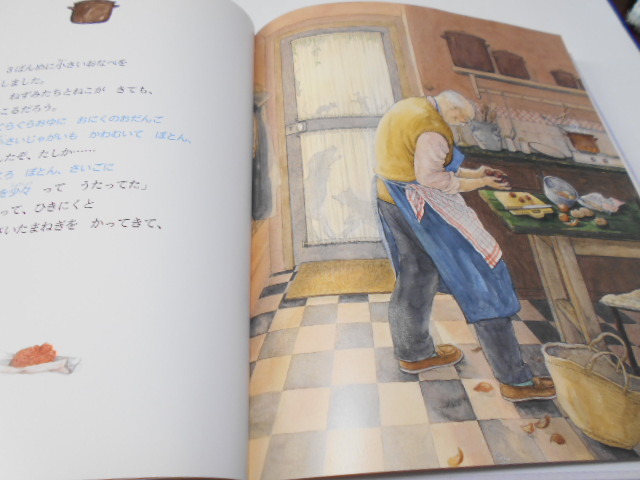 ３ばんめに小さいおなべを
しました。
ねずみたちとねこが きても、
こるだろう。
らぐらおゆに おにくのおだんご
小さいじゃがいも かわむいて ぽとん、
したぞ、たしか……
ろ ぽとん、さいごに
を少々 って うたってた」
って、ひきにくと
いたまねぎを かってきて、